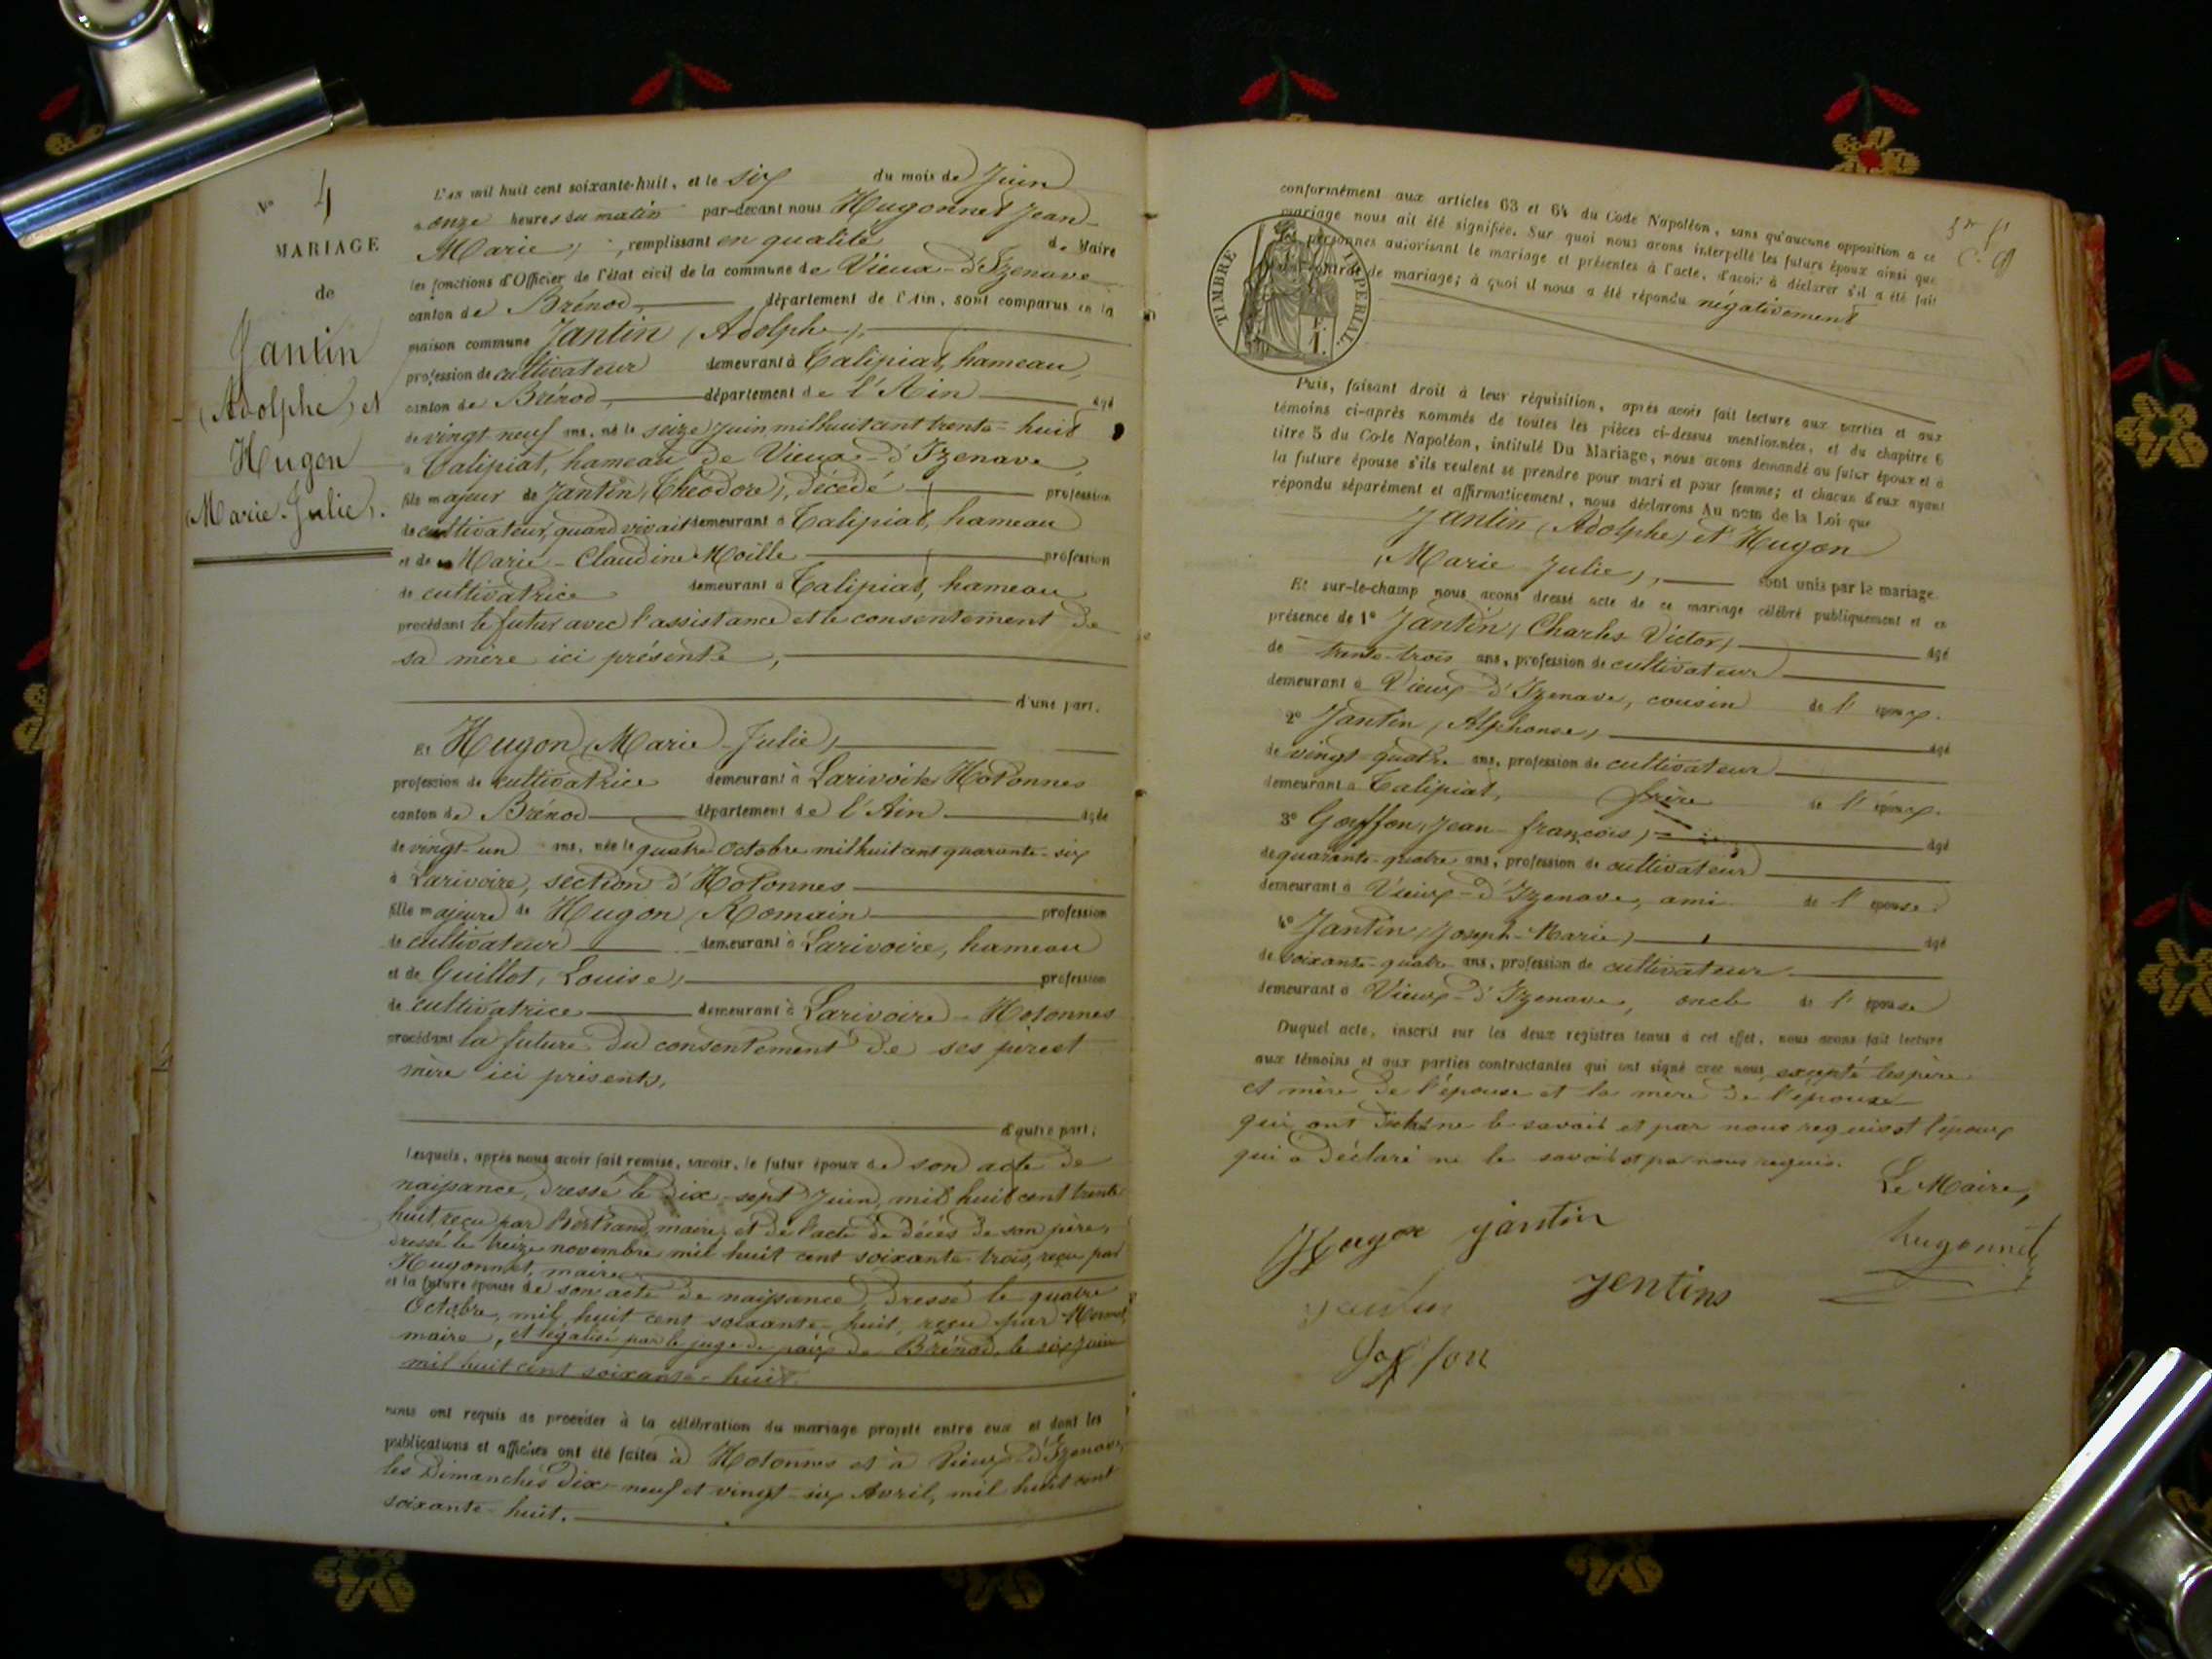 N° 4
MARIAGE
de
Jantin
(Adolphe) et
Hugon
(Marie-Julie).
L'an mil huit cent soixante-huit, et le six du mois de Juin
à onze heures du matin par-devant nous Hugonnet Jean-
Marie, remplissant en qualité de Maire
les fonctions d'Officier de l'état civil de la commune de Vieux-d'Izenave
canton de Brénod, département de l'Ain, sont comparus en la
maison commune Jantin (Adolphe),
profession de cultivateur demeurant à Talipiat, hameau,
canton de Brénod, département de l'Ain âgé
de vingt-neuf ans, né le seize Juin mil huit cent trente-huit
à Talipiat, hameau de Vieux-d'Izenave,
fils majeur de Jantin (Théodore), décédé profession
de cultivateur, quand vivait demeurant à Talipiat, hameau
et de Marie-Claudine Moille profession
de cultivatrice demeurant à Talipiat, hameau
procédant le futur avec l'assistance et le consentement de
sa mère ici présente,
d'une part.
Et Hugon (Marie-Julie)
profession de cultivatrice demeurant à Larivoire Hotonnes
canton de Brénod département de l'Ain âgée
de vingt-un ans, née le quatre Octobre mil huit cent quarante-six
à Larivoire, section d'Hotonnes
fille majeure de Hugon (Romain profession
de cultivateur demeurant à Larivoire, hameau
et de Guillot, Louise), profession
de cultivatrice demeurant à Larivoire-Hotonnes
procédant la future du consentement de ses père et
mère ici présents,
d'autre part;
Lesquels, après nous avoir fait remise, savoir, le futur époux de son acte de
naissance, dressé le dix-sept Juin, mil huit cent trente
huit, reçu par Bertrand, maire, et de l'acte de décès de son père,
dressé le treize novembre mil huit cent soixante-trois, reçu par
Hugonnet, maire
et la future épouse de son acte de naissance, dressé le quatre
Octobre, mil huit cent soixante-huit, reçu par
maire, et légalisé par le juge de paix de Brénod, le six Juin
mil huit cent soixante-huit.
nous ont requis de procéder à la célébration du mariage projeté entre eux et dont les
publications et affiches ont été faites à Hotonnes et à Vieux-d'Izenave,
les Dimanches dix-neuf et vingt-six Avril, mil huit cent
soixante-huit.
conformément aux articles 63 et 64 du Code Napoléon, sans qu'aucune opposition à ce
mariage nous ait été signifiée. Sur quoi nous avons interpellé les futurs époux ainsi que
les personnes autorisant le mariage et présentes à l'acte, d'avoir à déclarer s'il a été fait
contrat de mariage; à quoi il nous a été répondu négativement
TIMBRE IMPERIAL.
Puis, faisant droit à leur réquisition, après avoir fait lecture aux parties et aux
témoins ci-après nommés de toutes les pièces ci-dessus mentionnées, et du chapitre 6
titre 5 du Code Napoléon, intitulé Du Mariage, nous avons demandé au futur époux et à
la future épouse s'ils veulent se prendre pour mari et pour femme; et chacun d'eux ayant
répondu séparément et affirmativement, nous déclarons Au nom de la Loi que
Jantin (Adolphe) et Hugon
(Marie-Julie), sont unis par le mariage.
Et sur-le-champ nous avons dressé acte de ce mariage célébré publiquement et en
présence de 1° Jantin (Charles-Victor) âgé
de trente-trois ans, profession de cultivateur
demeurant à Vieux-d'Izenave, cousin de l' époux.
2° Jantin (Alphonse) âgé
de vingt-quatre ans, profession de cultivateur
demeurant à Talipiat, frère de l' époux.
3° Goyffon, Jean-françois) âgé
de quarante-quatre ans, profession de cultivateur
demeurant à Vieux-d'Izenave, ami de l' épouse.
4° Jantin (Joseph-Marie) âgé
de soixante-quatre ans, profession de cultivateur
demeurant à Vieux-d'Izenave, oncle de l' épouse
Duquel acte, inscrit sur les deux registres tenus à cet effet, nous avons fait lecture
aux témoins et aux parties contractantes qui ont signé avec nous, excepté les père
et mère de l'épouse et la mère de l'époux
qui ont dit ne le savoir et par nous requis et l'époux
qui a déclaré ne le savoir et par nous requis.
Le Maire,
Hugon jantin hugonnet
jentins